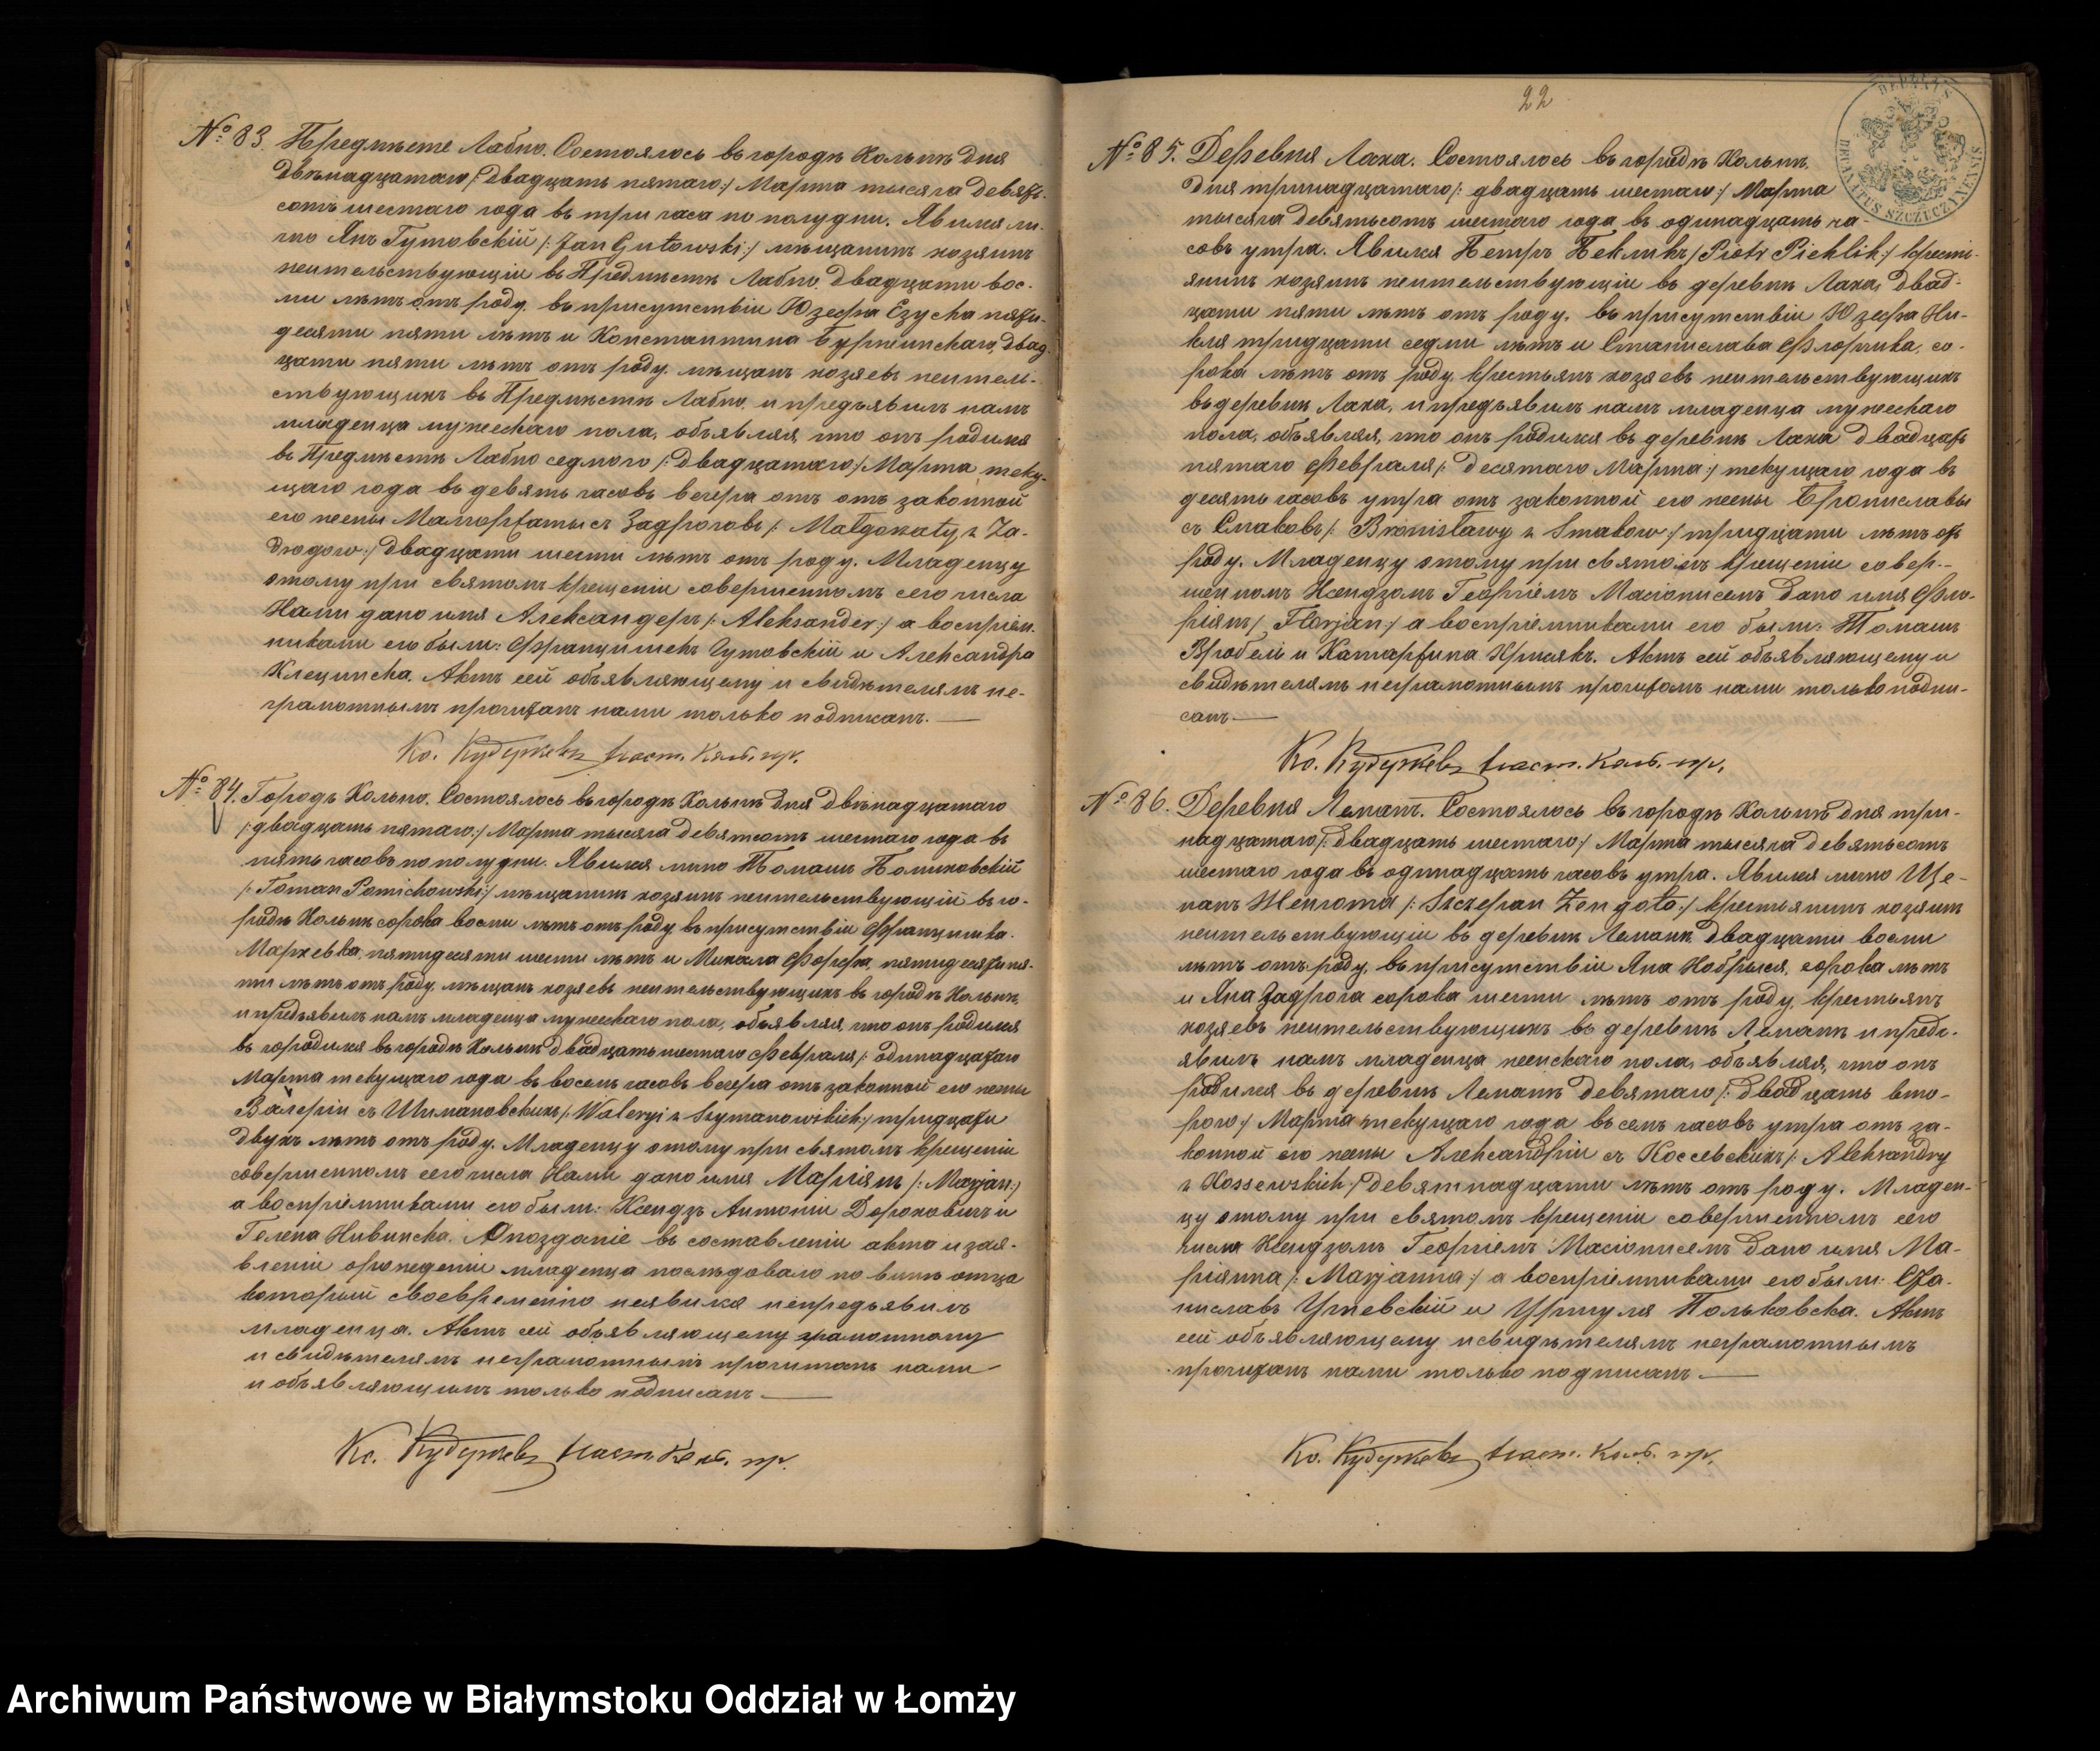 № 83. Предмѣстье Лабно. Состоялось въ городѣ Кольнѣ дня
двѣнадцатаго /: двадцать пятаго :/ Марта тысяча девять-
сотъ шестаго года въ три часа по полудни. Явился ли-
чно Янъ Гутовскій /: Jan Gutowski :/ мѣщанинъ хозяинъ
жительствующій въ Предмѣстѣ Лабно, двадцати вос-
ми лѣтъ отъ роду, въ присутствіи Юзефа Езуска пяти-
десяти пяти лѣтъ и Константина двад-
цати пяти лѣтъ отъ роду, мѣщанъ хозяевъ житель-
ствующихъ въ Предмѣстѣ Лабно, и предъявилъ намъ
младенца мужескаго пола, объявляя что онъ родился
въ Предмѣстѣ Лабно седмого /: двадцатаго :/ Марта теку-
щаго года въ девять часовъ вечера отъ отъ законной
его жены Малгоржаты съ Задроговъ /: Małgorzaty z Za-
drogów :/ двадцати шести лѣтъ отъ роду. Младенцу
этому при святомъ крещеніи совершенномъ сего числа
Нами дано имя Александеръ /: Aleksander :/ а воспріем-
никами его были: Францишекъ Гутовскій и Александра
Клещинска. Актъ сей объявляющему и свидѣтелямъ не-
грамотнымъ прочитанъ нами только подписанъ. —
Кс. наст. Кол. пр.
№ 84. Городъ Кольно. Состоялось въ городѣ Кольнѣ дня двѣнадцатаго
/: двадцать пятаго :/ Марта тысяча девятсотъ шестаго года въ
пять часовъ по полудни. Явился лично Томашъ Помиховскій
/: Tomasz Pomichowski :/ мѣщанинъ хозяинъ жительствующій въ го-
родѣ Кольнѣ сорока восми лѣтъ отъ роду въ присутствіи Францишка
Маржевка, пятидесяти шести лѣтъ и Михала Форфа, пятидесяти пя-
ти лѣтъ отъ роду, мѣщанъ хозяевъ жительствующихъ въ городѣ Кольнѣ,
и предъявилъ намъ младенца мужескаго пола, объявляя что онъ родился
въ городился въ городѣ Кольнѣ двадцать шестаго Февраля /: одинадцатаго
Марта текущаго года въ восемь часовъ вечера отъ законной его жены
Валеріи съ Шимановскихъ /: Waleryi z Szymanowskich :/ тридцати
двухъ лѣтъ отъ роду. Младенцу этому при святомъ крещеніи
совершенномъ сего числа Нами дано имя Маріянъ /: Marjan :/
а воспріемниками его были: Ксендзъ Антоній Дорохович и
Гелена Нивинска. Опозданіе въ составленіи акта и зая-
вленіи о рожденіи младенца послѣдовало по винѣ отца
который своевременно неявился и непредъявилъ
младенца. Актъ сей объявляющему грамотному
и свидѣтелямъ неграмотнымъ прочитанъ нами
и объявляющимъ только подписанъ. —
Кс. наст. Кол. пр.
22
DECANATUS SZCZUCZYNENSIS
№ 85. Деревня Лаха. Состоялось въ городѣ Кольнѣ,
дня тринадцатаго /: двадцать шестаго :/ Марта
тысяча девятьсотъ шестаго года въ одинадцать ча-
совъ утра. Явился Петръ Пехликъ /: Piotr Piehlik :/ кресть-
янинъ хозяинъ жительствующій въ деревнѣ Лаха, двад-
цати пяти лѣтъ отъ роду, въ присутствіи Юзефа Ни-
кля тридцати седми лѣтъ и Станислава Флорчика, со-
рока лѣтъ отъ роду, крестьянъ хозяевъ жительствующихъ
въ деревнѣ Лаха, и предъявилъ намъ младенца мужескаго
пола, объявляя, что онъ родился въ деревнѣ Лаха двадцать
пятаго Февраля /: десятаго Марта :/ текущаго года въ
десять часовъ утра отъ законной его жены Брониславы
съ Смаковъ /: Bronisławy z Smaków :/ тридцати лѣтъ отъ
роду. Младенцу этому при святомъ крещеніи совер-
шенномъ Ксендзомъ Георгіемъ Маціонисемъ дано имя Фло-
ріянъ /: Florjan :/ а воспріемниками его были: Томашъ
Вробель и Катаржина Курпякъ. Актъ сей объявляющему и
свидѣтелямъ неграмотнымъ прочитанъ нами только подпи-
санъ. —
Кс. наст. Кол. пр.
№ 86. Деревня Леманъ. Состоялось въ городѣ Кольнѣ дня три-
надцатаго /: двадцать шестаго :/ Марта тысяча девятьсотъ
шестаго года въ одинадцать часовъ утра. Явился лично Ще-
панъ Женгота /: Szczepan Żengota :/ крестьянинъ хозяинъ
жительствующій въ деревнѣ Леманѣ двадцати восми
лѣтъ отъ роду, въ присутствіи Яна Кобрыся, сорока лѣтъ
и Яна Задрога сорока шести лѣтъ отъ роду, крестьянъ
хозяевъ жительствующихъ въ деревнѣ Леманѣ и предъ-
явилъ намъ младенца женскаго пола, объявляя, что онъ
родился въ деревнѣ Леманѣ девятаго /: двадцать вто-
рого :/ Марта текущаго года въ семь часовъ утра отъ за-
конной его жены Александріи съ Коссевскихъ /: Aleksandry
z Kossewskich :/ девятнадцати лѣтъ отъ роду. Младен-
цу этому при святомъ крещеніи совершенномъ сего
числа Ксендзомъ Георгіемъ Маціонисемъ дано имя Ма-
ріянна /: Marjanna :/ а воспріемниками его были: Ста-
ниславъ Уржевскій и Уршуля Польковска. Актъ
сей объявляющему и свидѣтелямъ неграмотнымъ
прочитанъ нами только подписанъ. —
Кс. наст. Кол. пр.
Archiwum Państwowe w Białymstoku Oddział w Łomży